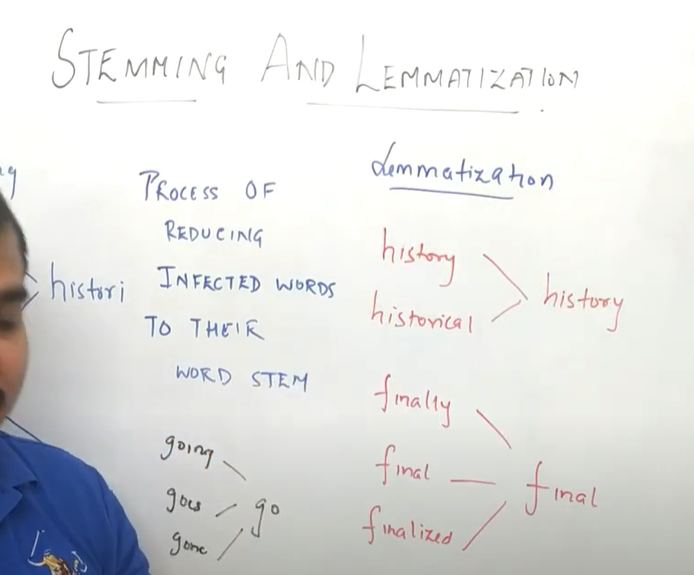 STEMMING AND LEMMATIZATION
histori
PROCESS OF
REDUCING
INFECTED WORDS
TO THEIR
WORD STEM
going
goes
gone
go
Lemmatization
history
historical
history
finally
final
finalized
final